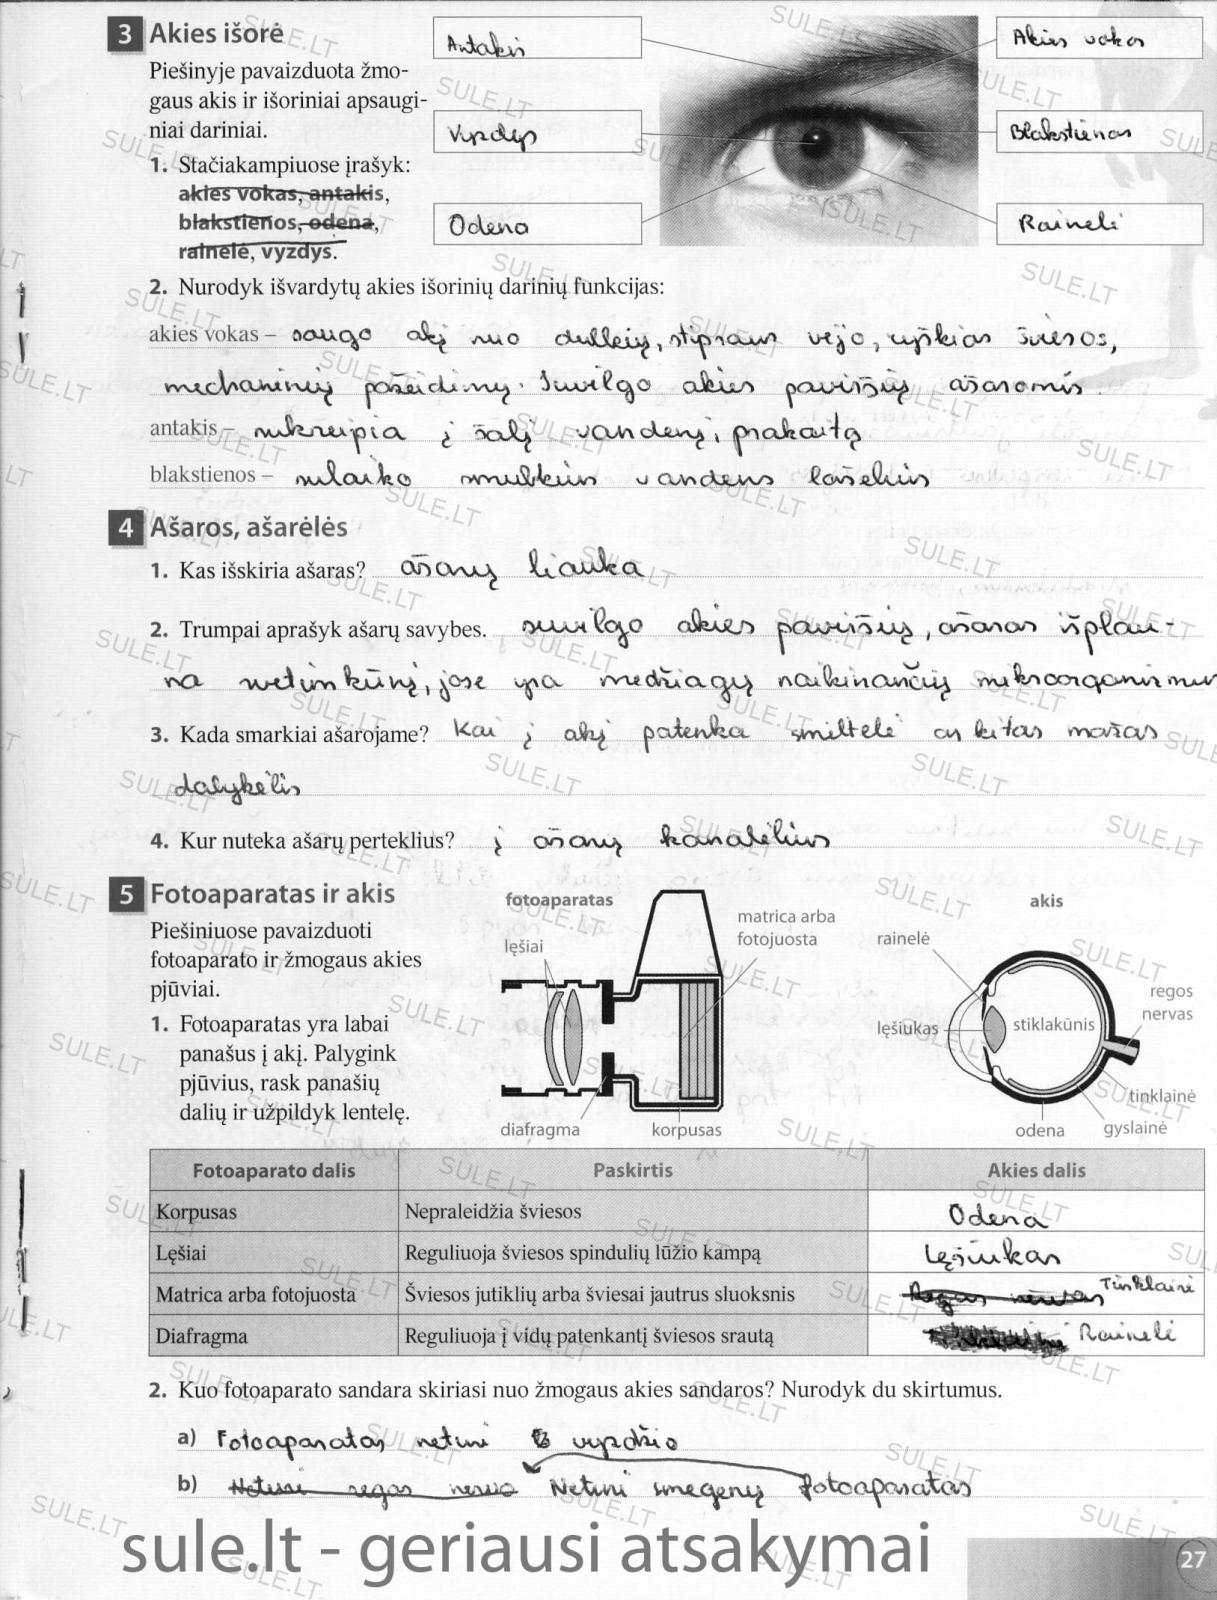 3 Akies išorė
Piešinyje pavaizduota žmo-
gaus akis ir išoriniai apsaugi-
niai dariniai.
1. Stačiakampiuose įrašyk:
akies vokas, antakis,
blakstienos, odena,
rainelė, vyzdys.
Antakis
Vyzdys
Odena
Akies vokas
Blakstienos
Rainelė
2. Nurodyk išvardytų akies išorinių darinių funkcijas:
akies vokas – saugo akį nuo dulkių, stipraus vėjo, ryškios šviesos,
mechaninių pažeidimų. Suvilgo akies paviršių ašaromis.
antakis – nukreipia į šalį vandenį, prakaitą
blakstienos – sulaiko smulkius vandens lašelius
4 Ašaros, ašarėlės
1. Kas išskiria ašaras? ašarų liauka
2. Trumpai aprašyk ašarų savybes. suvilgo akies paviršių, ašaros išplau-
na svetimkūnį, jose yra medžiagų naikinančių mikroorganizmus
3. Kada smarkiai ašarojame? Kai į akį patenka smiltelė ar kitas mažas
dalykėlis
4. Kur nuteka ašarų perteklius? į ašarų kanalėlius
5 Fotoaparatas ir akis
Piešiniuose pavaizduoti
fotoaparato ir žmogaus akies
pjūviai.
1. Fotoaparatas yra labai
panašus į akį. Palygink
pjūvius, rask panašių
dalių ir užpildyk lentelę.
fotoaparatas
lęšiai
matrica arba
fotojuosta
diafragma
korpusas
akis
rainelė
regos
nervas
lęšiukas
stiklakūnis
tinklainė
odena
gyslainė
Fotoaparato dalis Paskirtis Akies dalis
Korpusas Nepraleidžia šviesos Odena
Lęšiai Reguliuoja šviesos spindulių lūžio kampą Lęšiukas
Matrica arba fotojuosta Šviesos jutiklių arba šviesai jautrus sluoksnis Regos nervas Tinklainė
Diafragma Reguliuoja į vidų patenkantį šviesos srautą Rainelė
2. Kuo fotoaparato sandara skiriasi nuo žmogaus akies sandaros? Nurodyk du skirtumus.
a) Fotoaparatas neturi vyzdžio
b) Neturi regos nervo Neturi smegenų fotoaparatas
sule.lt - geriausi atsakymai
27